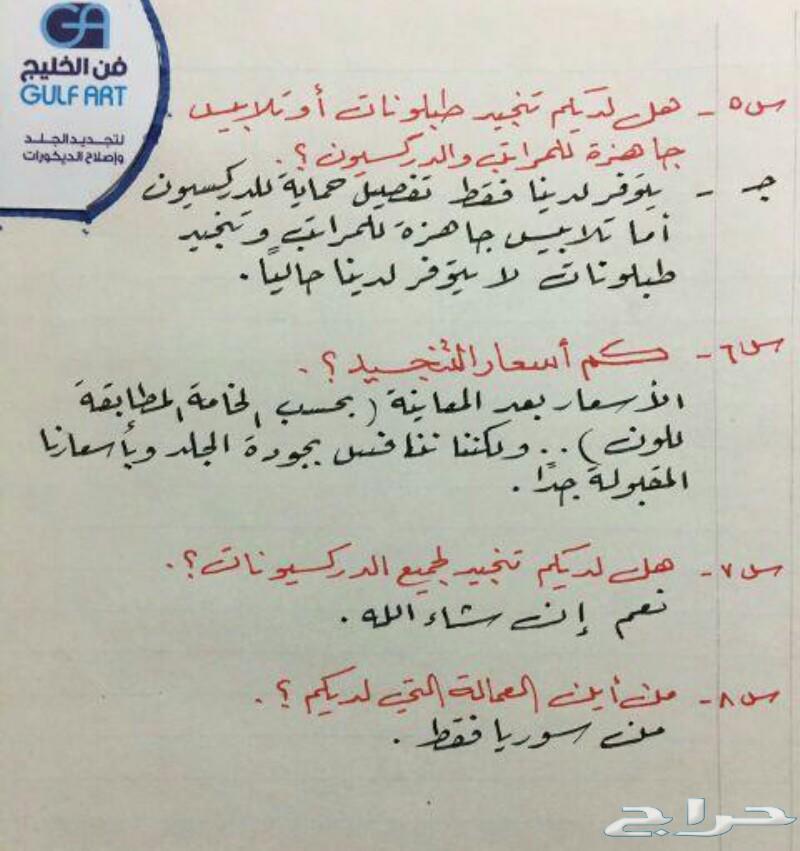 GA
فن الخليج
GULF ART
لتجديد الجلد
وإصلاح الديكورات
س٥ - هل لديكم تنجيد طبلونات أو تلابيس
جاهزة للمراتب والدركسيون؟.
جـ - يتوفر لدينا فقط تفصيل حماية للدركسيون
أما تلابيس جاهزة للمراتب وتنجيد
طبلونات لا يتوفر لدينا حالياً.
س٦ - كم أسعار التنجيد؟.
الأسعار بعد المعاينة (بحسب الخامة المطابقة
للون).. ولكننا ننافس بجودة الجلد وبأسعارنا
المقبولة جداً.
س٧ - هل لديكم تنجيد لجميع الدركسيونات؟.
نعم إن شاء الله.
س٨ - من أين العمالة التي لديكم؟.
من سوريا فقط.
حراج